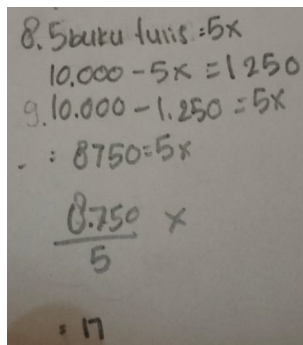 8. 5 buku tulis = 5x
10.000 - 5x = 1250
9. 10.000 - 1.250 = 5x
: 8750 = 5x
8.750 x
5
= 17